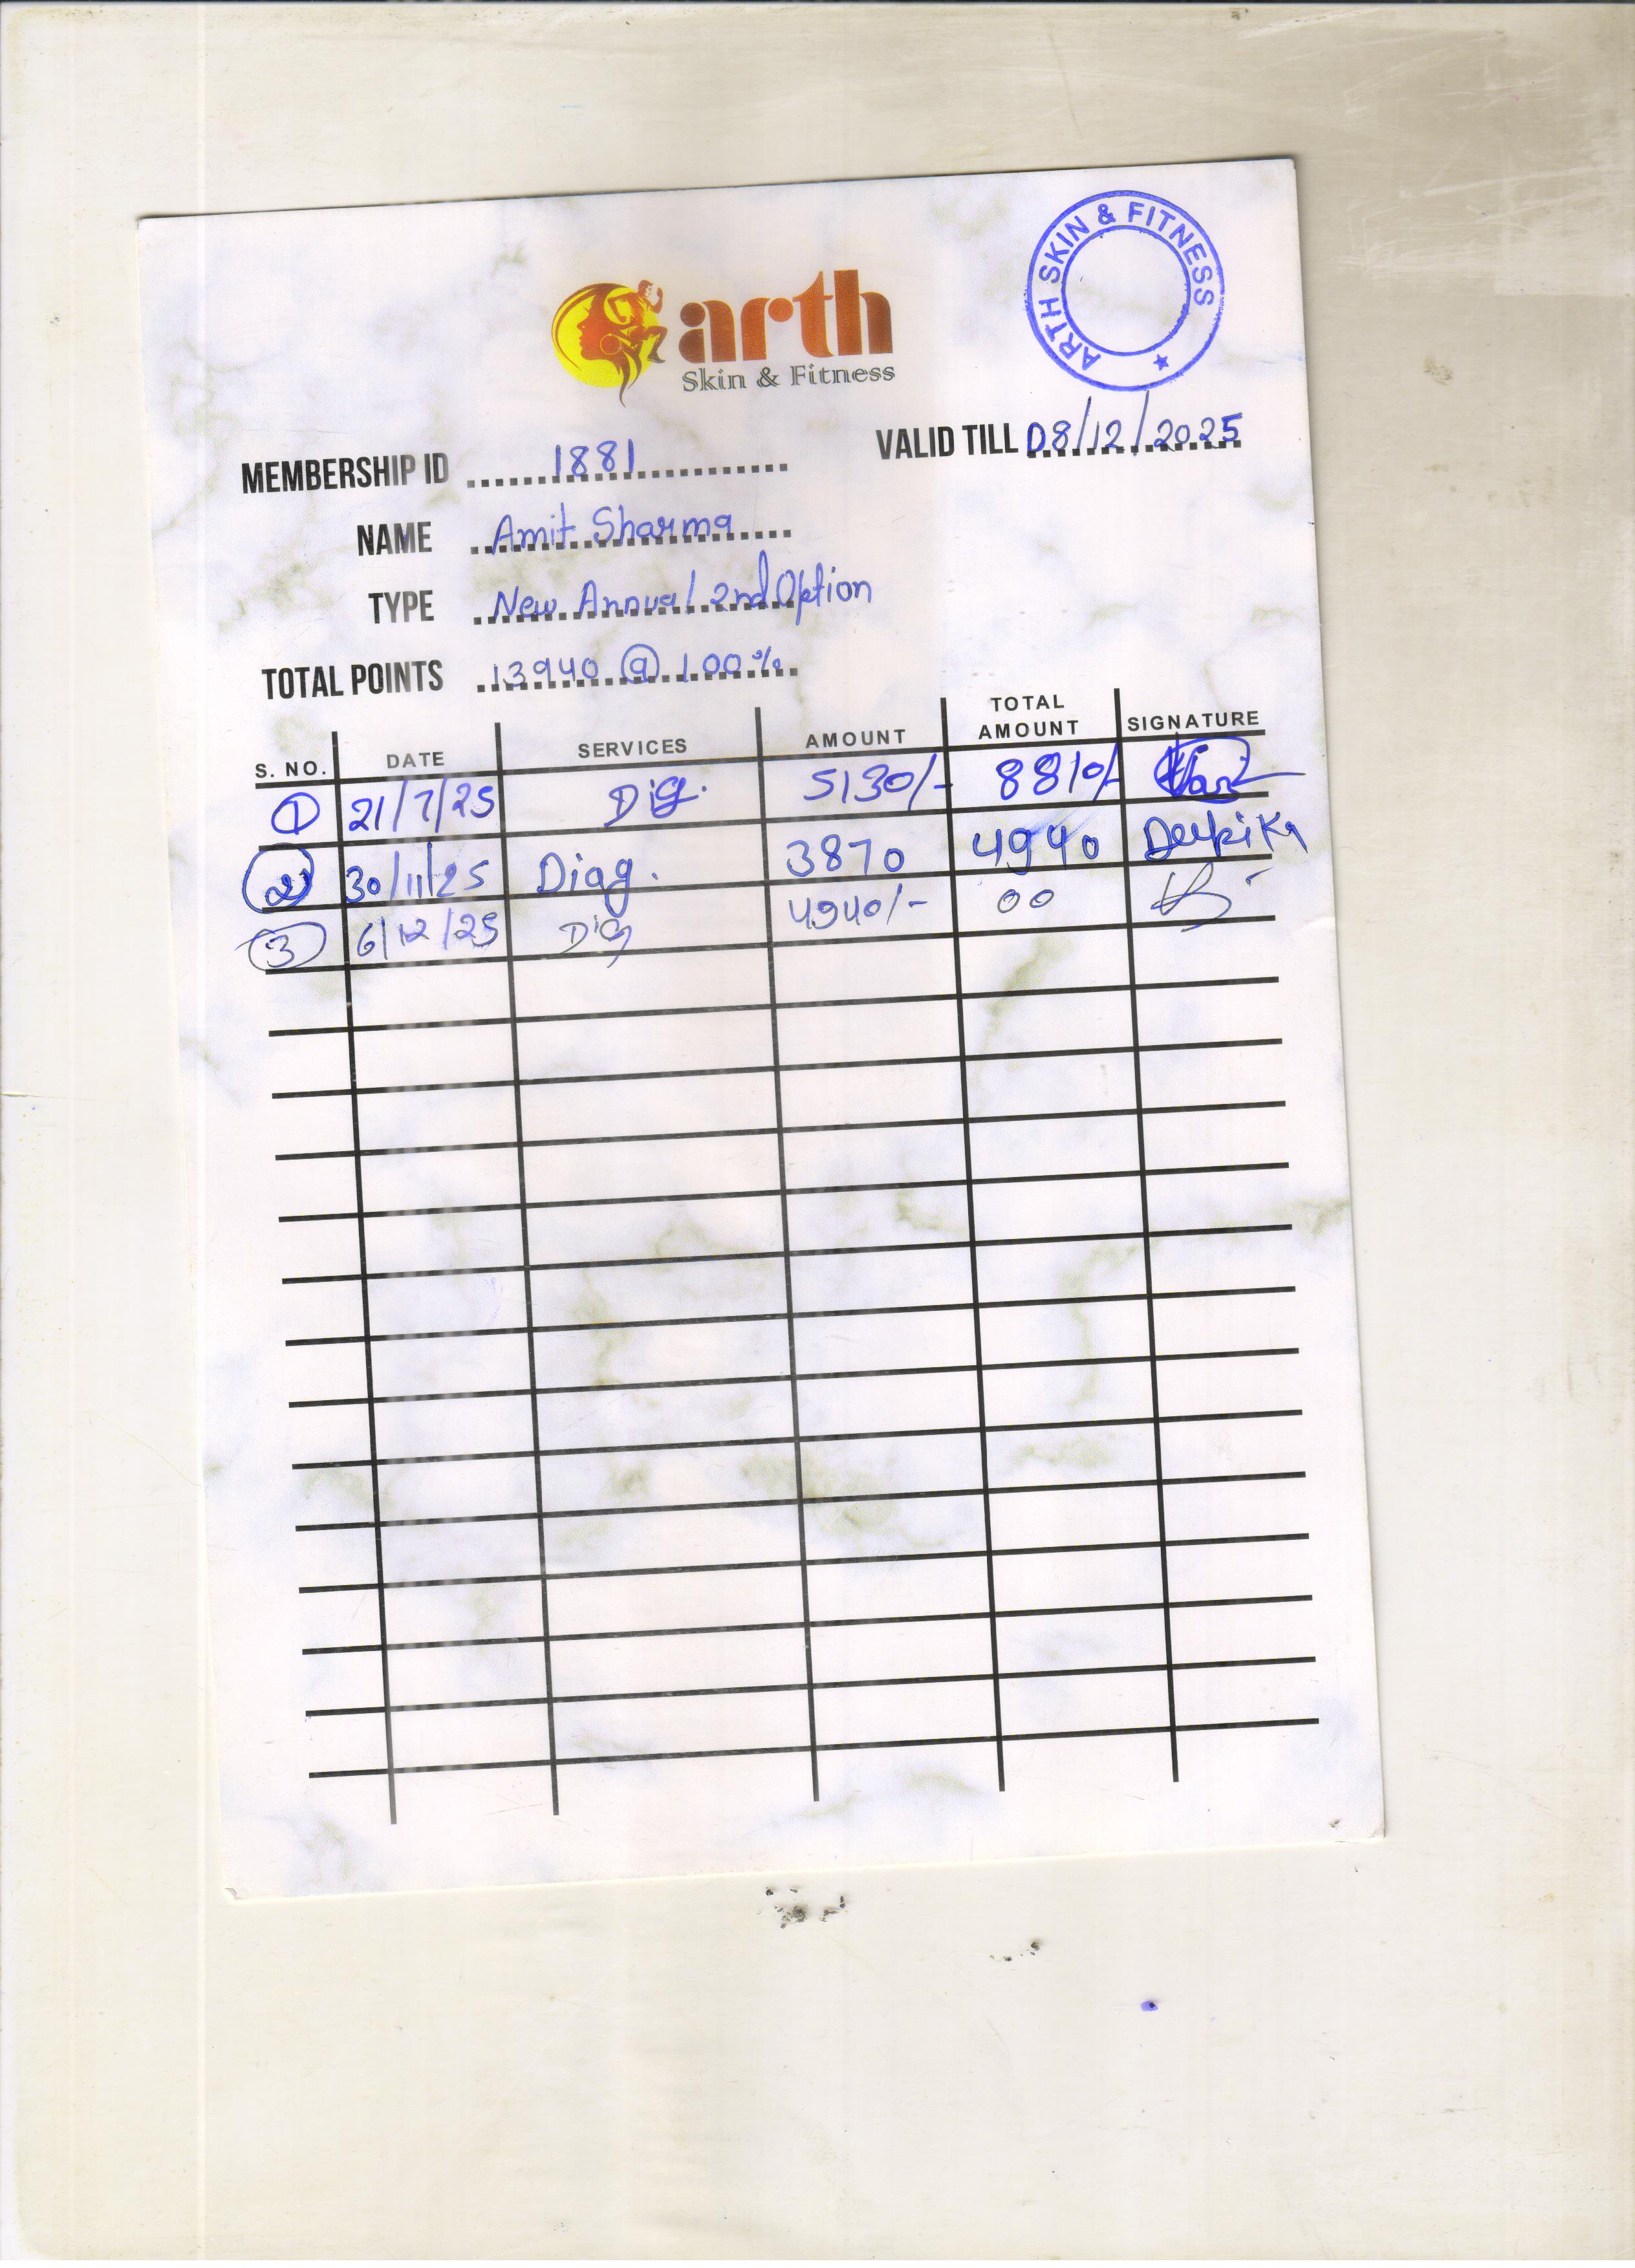 ARTH SKIN & FITNESS
arth
Skin & Fitness
VALID TILL 08/12/2025
MEMBERSHIP ID 1881
NAME Amit Sharma
TYPE New Annual 2nd Option
TOTAL POINTS 13940 @ 100%
S. NO. DATE SERVICES AMOUNT TOTAL AMOUNT SIGNATURE
1 21/7/25 Dig. 5130/- 8810/-
2 30/11/25 Diag. 3870 4940
3 6/12/25 Dig 4940/- 00